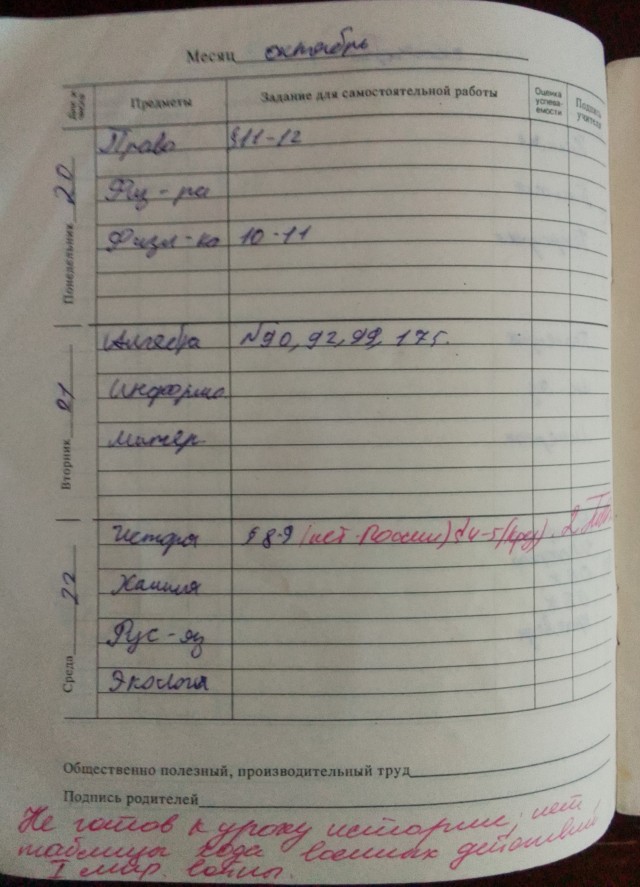 Месяц октябрь
Дни и числа Предметы Задание для самостоятельной работы Оценка успеваемости Подпись учителя
Понедельник 20
Право §11-12
Физ-ра
10-11
Вторник 21
Алгебра №90, 92, 99, 175.
Информа
Среда 22
§ 8-9 (ист. России) §4-5 2
Химия
Рус-яз
Экология
Общественно полезный, производительный труд
Подпись родителей
Не готов к уроку истории, нет
таблицы хода военных действий
I мир. войны.